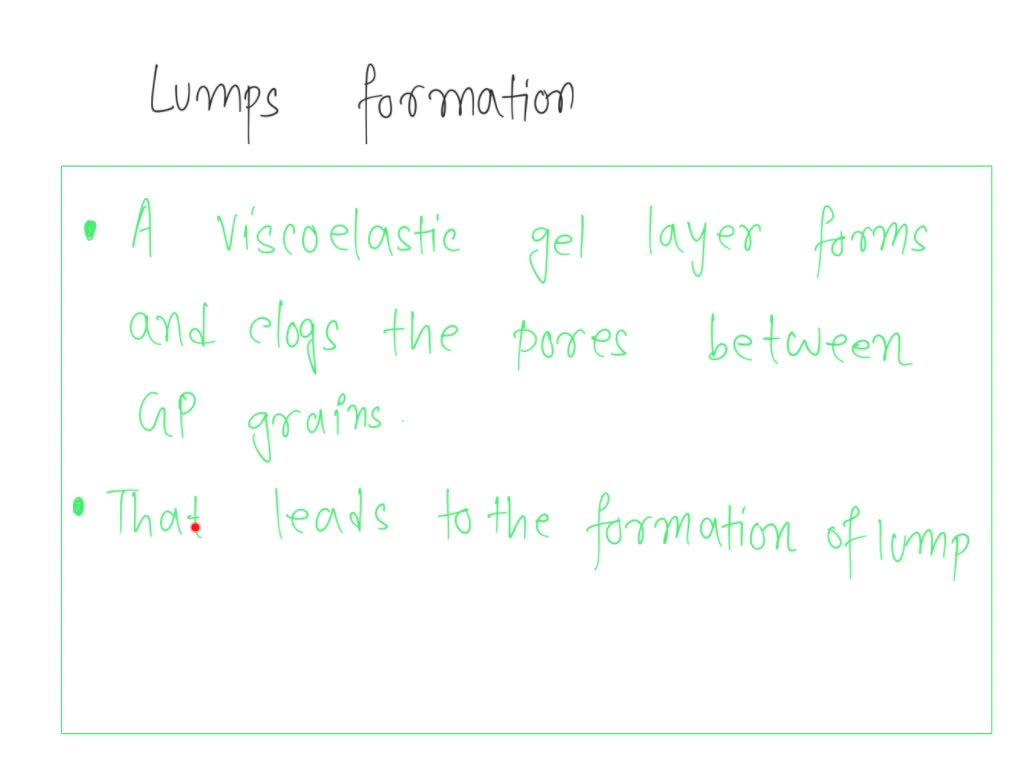 Lumps formation
• A viscoelastic gel layer forms
and clogs the pores between
GP grains.
• That leads to the formation of lump